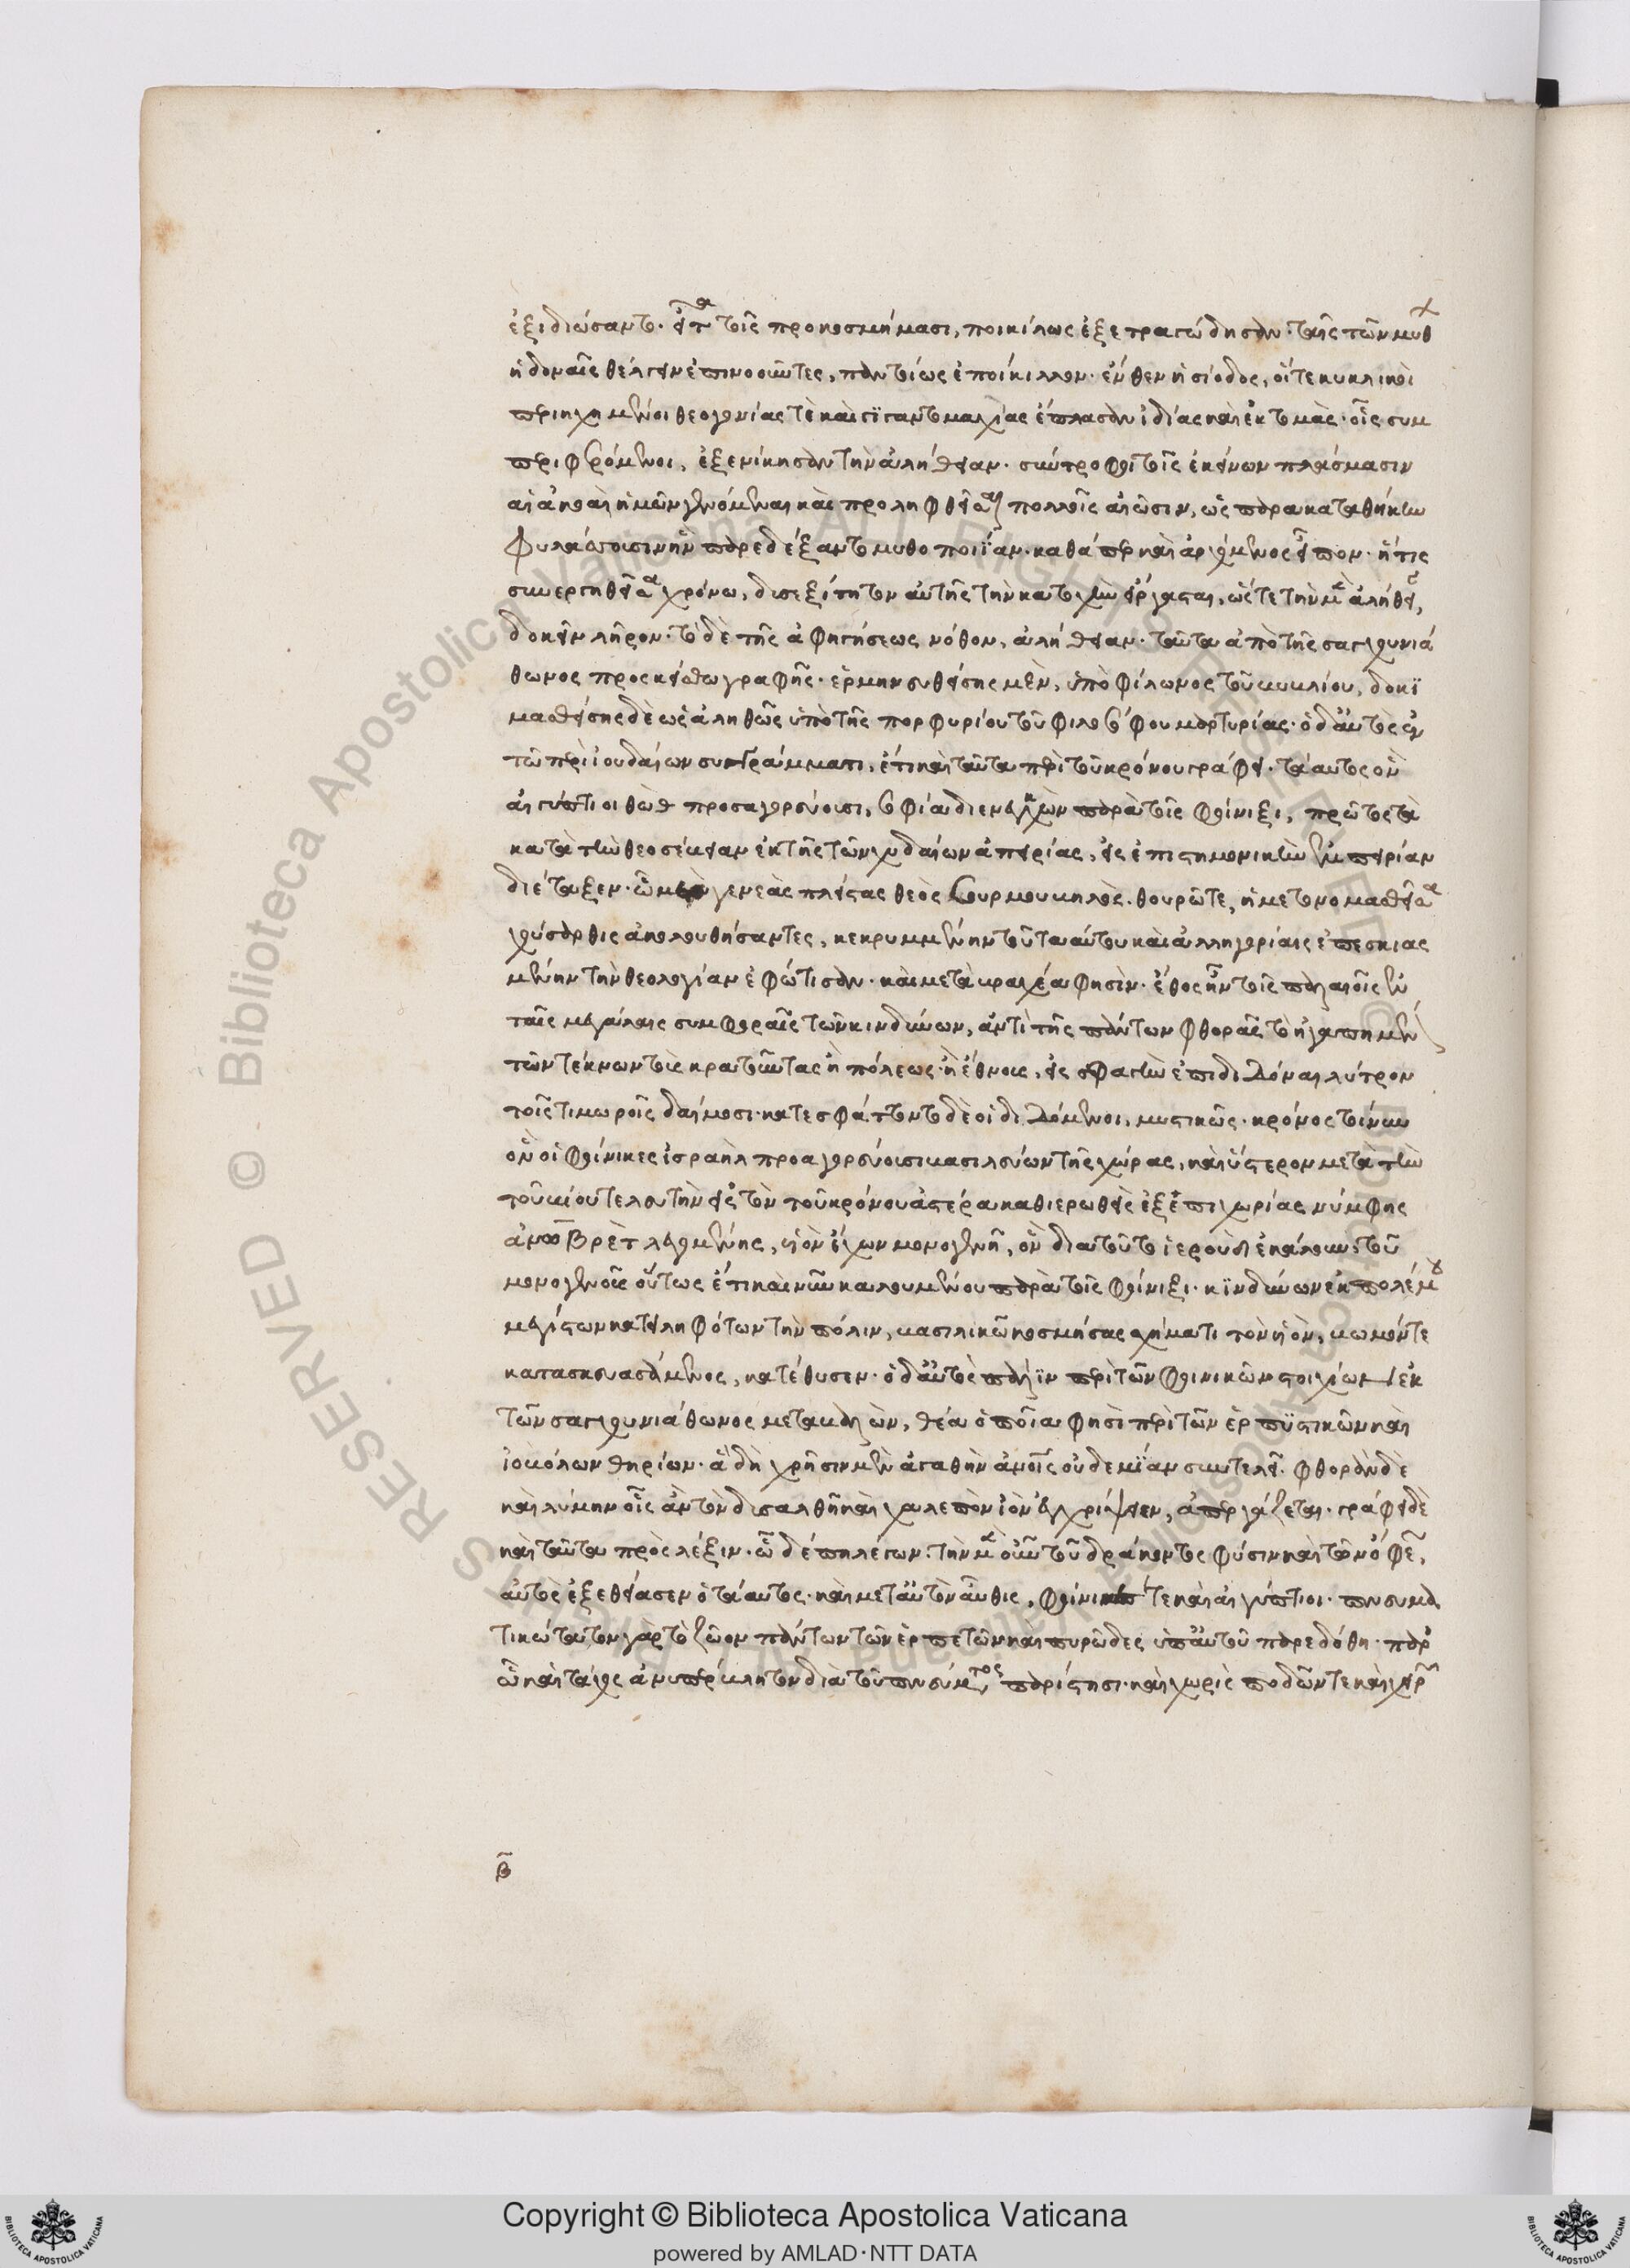 ἐξιδιώσαντο. εἶτα τοῖς προκοσμήμασι, ποικίλως ἐξετραγώδησαν. ταῖς τῶν μύθ
ἡδοναῖς θέλγειν ἐπινοοῦντες, παντοίως ἐποίκιλλον. ἔνθεν ἡσίοδος, οἵ τε κυκλικοὶ
περιηχημένοι θεογονίας τὲ καὶ γϊγαντομαχίας ἔπλασαν ἰδίας καὶ ἐκτομὰς. οἷς συμ
περιφερόμενοι, ἐξενίκησαν τὴν ἀλήθειαν. σύντροφοι τοῖς ἐκείνων πλάσμασιν
αἱ ἀκοαὶ ἡμῶν γενόμεναι καὶ προληφθεῖσαι πολλοῖς αἰῶσιν, ὡς παρακαταθήκην
φυλάσσουσιν ἣν παρεδέξαντο μυθοποιΐαν. καθάπερ καὶ ἀρχόμενος εἶπον. ἥτις
συνεργηθεῖσα χρόνω, δυσεξίτητον αὐτῆς τὴν κατοχὴν εἴργασται, ὥς τε τὴν μὲν ἀλήθειαν,
δοκεῖν λῆρον. τὸ δὲ τῆς ἀφηγήσεως νόθον, ἀλήθειαν. ταῦτα ἀπὸ τῆς σαγχουνιά
θωνος προςκείσθω γραφῆς. ἑρμηνευθείσης μὲν, ὑπὸ φίλωνος τοῦ βυβλίου, δοκϊ
μασθείσης δὲ ὡς ἀληθῶς ὑπὸ τῆς πορφυρίου τοῦ φιλοσόφου μαρτυρίας. ὁ δ' αὐτὸς ἐν
τῶ περὶ ἰουδαίων συγγράμματι, ἔτι καὶ ταῦτα περὶ τοῦ κρόνου γράφει. τάαυτος ὃν
αἰγύπτιοι θὼθ προσαγορεύουσι, σοφία διενεγκὼν παρὰ τοῖς φοίνιξι, πρῶτος τὰ
κατὰ τὴν θεοσέβειαν ἐκ τῆς τῶν χυδαίων ἀπειρίας, εἰς ἐπιστημονικὴν ἐμπειρίαν
διέταξεν. ὧ μετὰ γενεὰς πλείστας θεὸς σουρμουβηλὸς. θουρῶ τε, ἡ μετονομασθεῖσα
χούσαρθις ἀκολουθήσαντες, κεκρυμμένην τοῦ τααύτου καὶ ἀλληγορίαις ἐπεσκιας
μένην τὴν θεολογίαν ἐφώτισαν. καὶ μετὰ βραχέα φησὶν. ἔθος ἦν τοῖς παλαιοῖς ἐν
ταῖς μεγάλαις συμφοραῖς τῶν κινδύνων, ἀντὶ τῆς πάντων φθορᾶς τὸ ἠγαπημέν
τῶν τέκνων τοὺς κρατοῦντας ἢ πόλεως ἢ ἔθνους, εἰς σφαγὴν ἐπιδιδόναι λύτρον
τοῖς τιμωροῖς δαίμοσι. κατεσφάττοντο δὲ οἱ διδόμενοι, μυστικῶς. κρόνος τοίνυν
ὃν οἱ φοίνικες ἰσραὴλ προαγορεύουσι βασιλεύων τῆς χώρας, καὶ ὕστερον μετὰ τὴν
τοῦ βίου τελευτὴν εἰς τὸν τοῦ κρόνου ἀστέρα καθιερωθεὶς ἐξ ἐπιχωρίας νύμφης
ἀνωβρὲτ λεγομένης, υἱὸν ἔχων μονογενῆ, ὃν διατοῦτο ἱεροὺδ ἐκάλουν, τοῦ
μονογενοῦς οὕτως ἔτι καὶ νῦν καλουμένου παρὰ τοῖς φοίνιξι. κϊνδύνων ἐκ πολέμου
μεγίστων κατειληφότων τὴν πόλιν, βασιλικῶ κοσμήσας σχήματι τὸν υἱὸν, βωμόν τε
κατασκευασάμενος, κατέθυσεν. ὁ δ' αὐτὸς πάλϊν περὶ τῶν φοινικῶν στοιχείων ἐκ
τῶν σαγχουνιάθωνος μεταβαλὼν, θέα ὁποῖα φησὶ περὶ τῶν ἑρπϋστικῶν καὶ
ἰοβόλων θηρίων. ἃ δὴ χρῆσιν μὲν ἀγαθὴν ἀνοῖς οὐδεμΐαν συντελεῖ. φθορὰν δὲ
καὶ λύμην οἷς ἂν τὸν δυσαλθῆ καὶ χαλεπὸν ἰὸν ἐγχρίψειεν, ἀπεργάζεται. γράφει δὲ
καὶ ταῦτα πρὸς λέξιν. ὧδέ πη λέγων. τὴν μὲν οὖν τοῦ δράκοντος φύσιν καὶ τῶν ὄφεων,
αὐτὸς ἐξεθείασεν ὁ τάαυτος. καὶ μετ' αὐτὸν αὖθις, φοίνικές τε καὶ αἰγύπτιοι. πνευμα
τικώτατον γὰρ τὸ ζῶον πάντων τῶν ἑρπετῶν καὶ πυρῶδες ὑπ' αὐτοῦ παρεδόθη. παρ'
ὧ καὶ τάχος ἀνυπέρβλητον διὰ τοῦ πνεύματος παρίστησι. καὶ χωρὶς ποδῶν τε καὶ χειρῶν
β
Copyright © Biblioteca Apostolica Vaticana
powered by AMLAD·NTT DATA